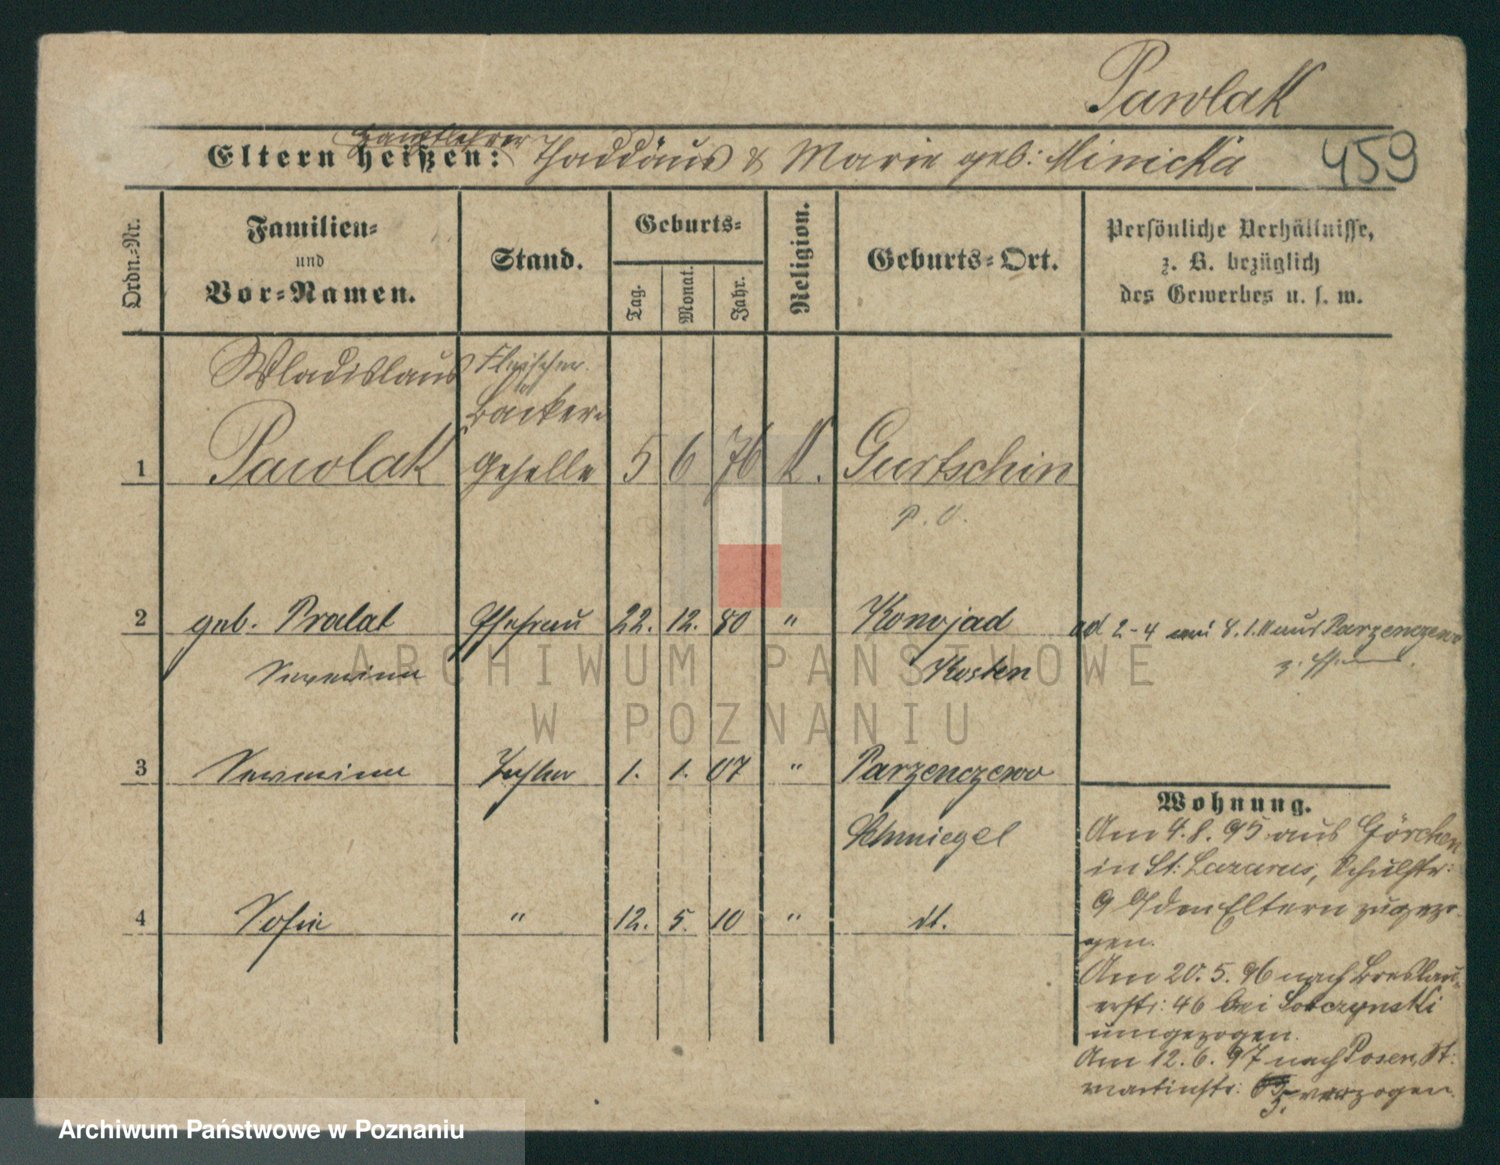 Pawlak
Hauptlehrer
Eltern heißen: Thaddäus & Marie geb: Minicka 459
Ordn.-Nr.
Familien- und Vor-Namen.
Stand.
Geburts-
Tag. Monat. Jahr.
Religion.
Geburts-Ort.
Persönliche Verhältnisse,
z. B. bezüglich
des Gewerbes u. s. w.
Wladislaus Fleischer
Bäcker
1 Pawlak Geselle 5 6 76 K. Gurtschin
P. O.
2 geb. Pralat Ehefrau 22. 12. 80 " Konojad ad 2-4 8.1.11 aus Parzenczewo
Kosten
3 Tochter 1. 1. 07 " Parzenczewo
Schmiegel
4 Sofie " 12. 5. 10 " dt.
Wohnung.
Am 4.8.95 aus Görchen
in St: Lazarus, Schulstr:
9 den Eltern zugezo-
gen.
Am 20.5.96 nach Breslau-
erstr: 46 bei Sobczynski
umgezogen.
Am 12.6.97 nach Posen, St:
Martinstr: verzogen.
ARCHIWUM PAŃSTWOWE
W POZNANIU
Archiwum Państwowe w Poznaniu